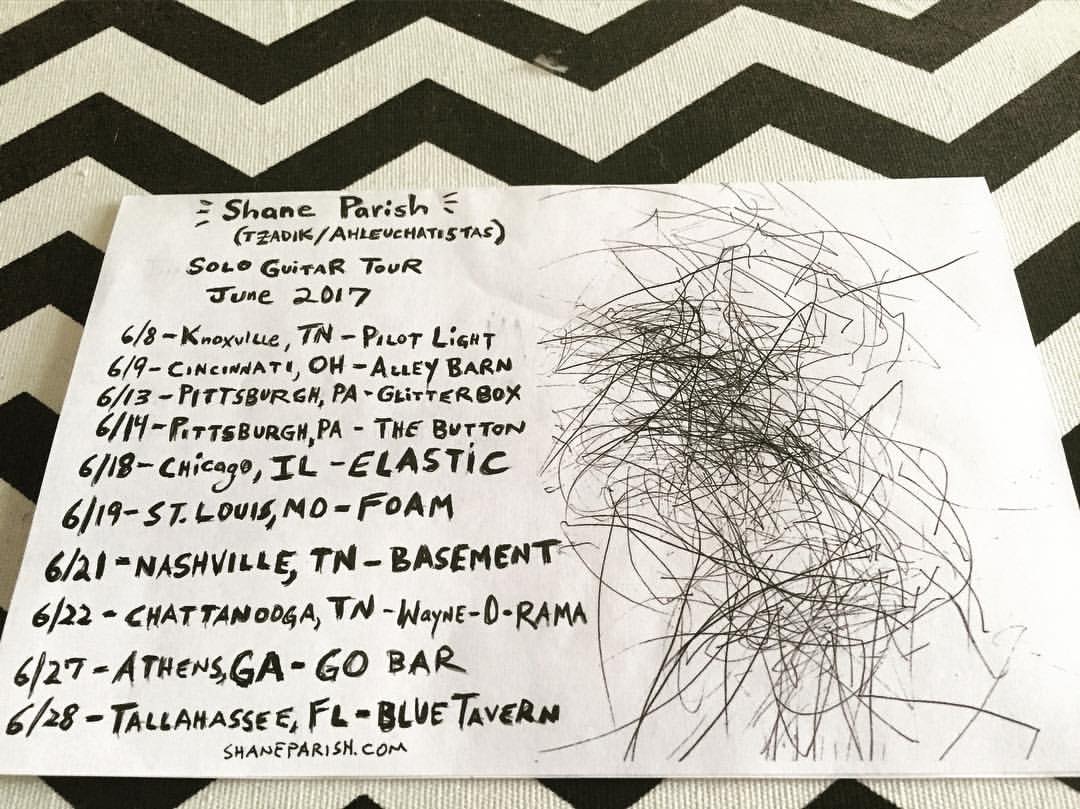 Shane Parish
(TZADIK/AHLEUCHATISTAS)
SOLO GUITAR TOUR
June 2017
6/8-Knoxville, TN-PILOT LIGHT
6/9-CINCINNATI, OH-ALLEY BARN
6/13-PITTSBURGH, PA-GLITTERBOX
6/14-PITTSBURGH, PA-THE BUTTON
6/18-CHicago, IL-ELASTIC
6/19-ST. LOUIS, MO-FOAM
6/21-NASHVILLE, TN-BASEMENT
6/22-CHATTANOOGA, TN-WAyne-O-RAMA
6/27-ATHENS, GA-GO BAR
6/28-TALLAHASSEE, FL-BLUE TAVERN
SHANEPARISH.COM